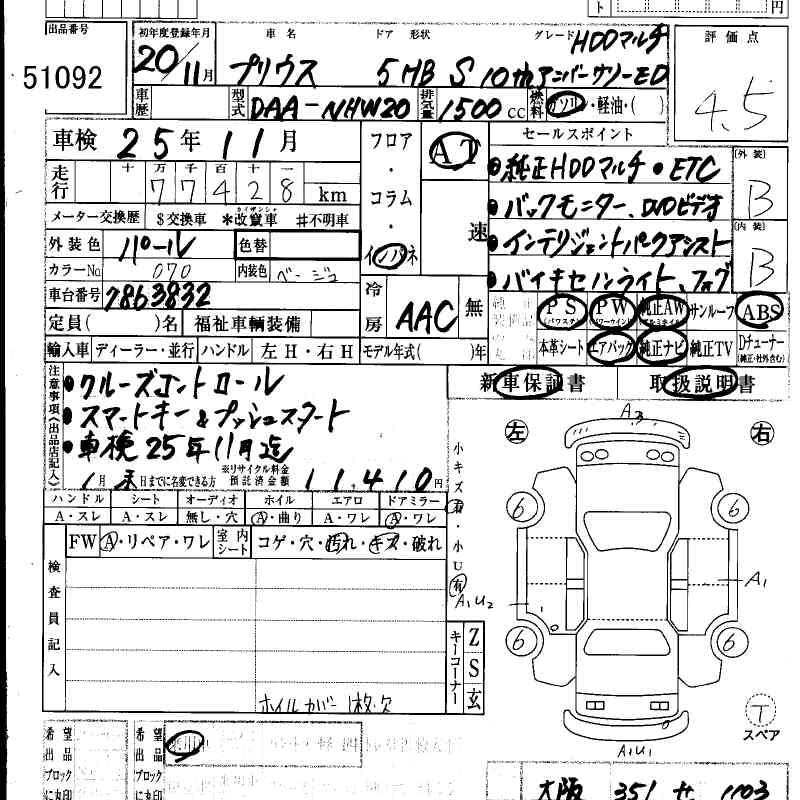 ト 円
出品番号 初年度登録年月 車名 ドア 形状 グレード HDDマルチ 評価点
51092 20/11月 プリウス 5 HB S 10thアニバーサリーED 4.5
車歴 型式 DAA-NHW20 排気量 1500cc 燃料 ガソリン・軽油・( )
車検 25年11月 フロア・コラム・インパネ AT 速 セールスポイント
走行 十 万 千 百 十 一 77428 km
●純正HDDマルチ ●ETC (外装) B
メーター交換歴 $交換車 *改竄車 #不明車
●バックモニター、DVDビデオ
外装色 パール 色替
●インテリジェントパークアシスト (内装) B
カラーNo 070 内装色 ベージュ
●バイキセノンライト、フォグ
車台番号 7863832 冷房 AAC 無
PS(パワステ) PW(パワーウインド) 純正AW(アルミホイル) サンルーフ ABS
定員( )名 福祉車輌装備
本革シート エアバック 純正ナビ 純正TV Dチューナー(純正・社外含む)
輸入車 ディーラー・並行 ハンドル 左H・右H モデル年式( )年
注意事項(出品店記入) 新車保証書 取扱説明書
●クルーズコントロール
●スマートキー&プッシュスタート
●車検25年11月迄
1月末日までに名変できる方 ※リサイクル料金預託済金額 11,410円
ハンドル シート オーディオ ホイル エアロ ドアミラー
A・スレ A・スレ 無し・穴 A・曲り A・ワレ A・ワレ
FW A・リペア・ワレ 室内シート コゲ・穴・汚れ・キズ・破れ
検査員記入
ホイルカバー1枚欠
小キズ有・小U有
キーコーナー Z S 玄
左 A3 右
6 6
A1U2 A1
6 6
A1U1
T スペア
希望出品ブロックに丸印 希望出品ブロックに丸印
大阪 351 せ 1103